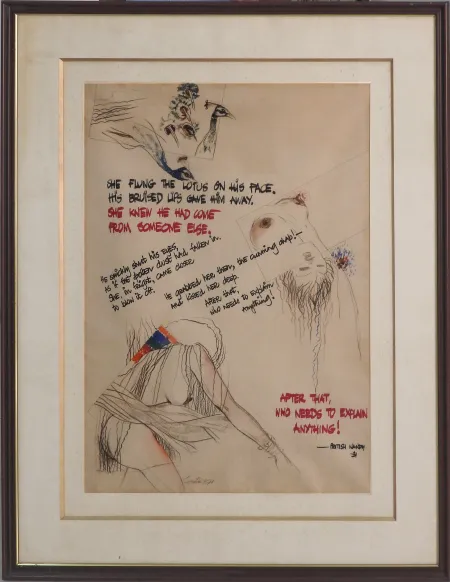 SHE FLUNG THE LOTUS ON HIS FACE.
HIS BRUISED LIPS GAVE HIM AWAY.
SHE KNEW HE HAD COME
FROM SOMEONE ELSE.
HE quickly shut his EYES,
as if the broken dust had fallen in.
SHE, in fright, came closer
to blow it off.
HE grabbed her then, the cunning chap!—
and kissed her deep.
AFTER that,
who needs to explain
anything!
AFTER THAT,
WHO NEEDS TO EXPLAIN
ANYTHING!
— PRITISH NANDY